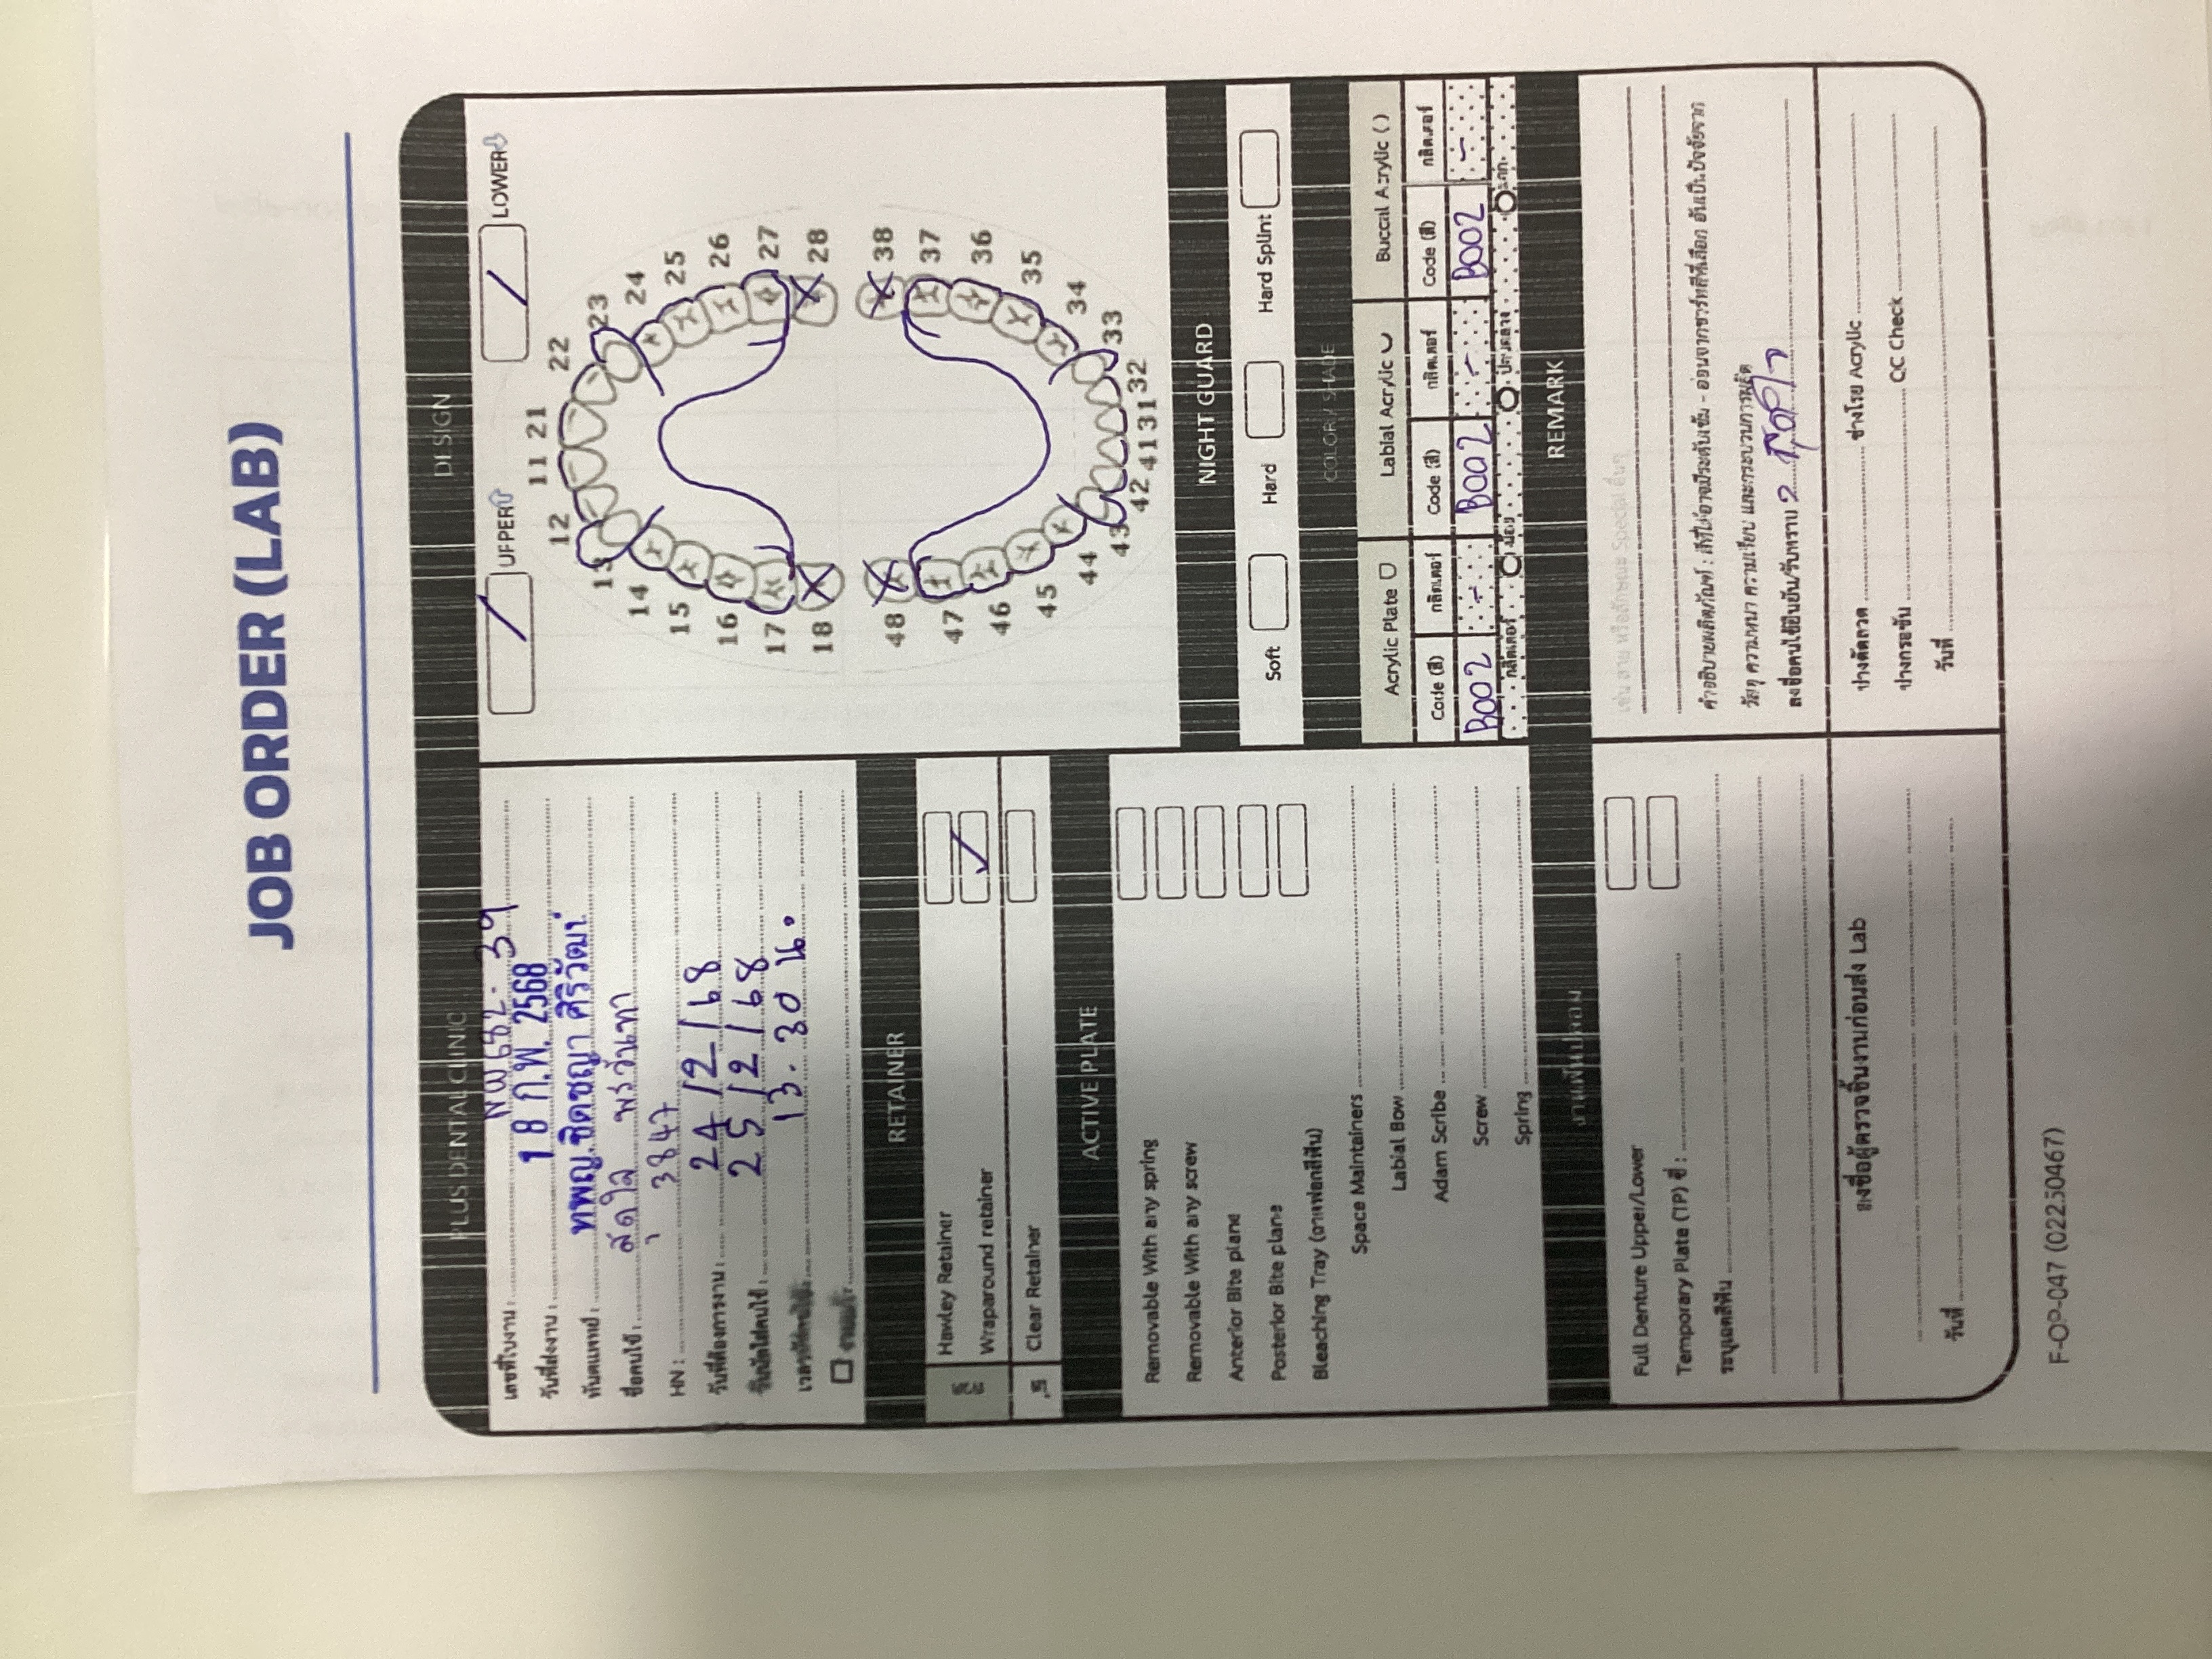 JOB ORDER (LAB)
PLUS DENTAL CLINIC
เลขที่ใบงาน : NW682-39
วันที่ส่งงาน : 18 ก.พ. 2568
ทันตแพทย์ : ทพญ.ชิดชญา ศิริวัฒน์
ชื่อคนไข้ : สุดใจ พรวันทา
HN : 3847
วันที่ต้องการงาน : 24/2/68
วันนัดใส่คนไข้ : 25/2/68
13.30 น.
งานแก้ :
RETAINER
ลวด
Hawley Retainer
Wraparound retainer
ใส
Clear Retainer
ACTIVE PLATE
Removable With any spring
Removable With any screw
Anterior Bite plane
Posterior Bite plane
Bleaching Tray (ถาดฟอกสีฟัน)
Space Maintainers
Labial Bow
Adam Scribe
Screw
Spring
งานฟันปลอม
Full Denture Upper/Lower
Temporary Plate (TP) ซี่ :
ระบุเฉดสีฟัน
ลงชื่อผู้ตรวจชิ้นงานก่อนส่ง Lab
วันที่
DESIGN
UPPER LOWER
11 21
12 22
13 23
14 24
15 25
16 26
17 27
18 28
48 38
47 37
46 36
45 35
44 34
43 33
42 41 31 32
NIGHT GUARD
Soft Hard Hard Splint
COLOR / SHADE
Acrylic Plate Labial Acrylic Buccal Acrylic ( )
Code (สี) กลิตเตอร์ Code (สี) กลิตเตอร์ Code (สี) กลิตเตอร์
B002 - B002 - B002 -
กลิตเตอร์ น้อย ปานกลาง มาก
REMARK
เช่น ลาย หรือลักษณะ Special อื่นๆ
คำอธิบายผลิตภัณฑ์ : สีที่ได้อาจมีระดับเข้ม - อ่อนจากชาร์ทสีที่เลือก อันเป็นปัจจัยจาก
วัสดุ ความหนา ความเรียบ และกระบวนการผลิต
ลงชื่อคนไข้ยืนยัน/รับทราบ สุดใจ
ช่างดัดลวด ช่างโรย Acrylic
ช่างกรอขัน QC Check
วันที่
F-OP-047 (02250467)